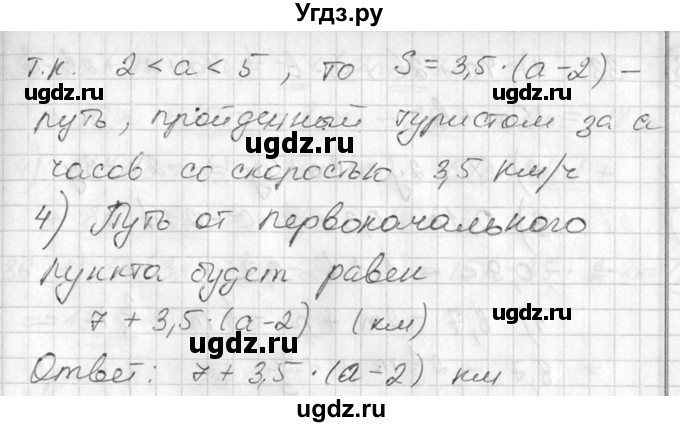 Угдз.ру
т.к. 2 < a < 5, то S = 3,5·(a-2) –
ugdz.ru ugdz.ru
путь, пройденный туристом за a
ugdz.ru
часов со скоростью 3,5 км/ч
4) Путь от первоначального
ugdz.ru ugdz.ru
пункта будет равен
7 + 3,5·(a-2) (км)
ugdz.ru
Ответ: 7 + 3,5·(a-2) км
ugdz.ru ugdz.ru
ugdz.ru